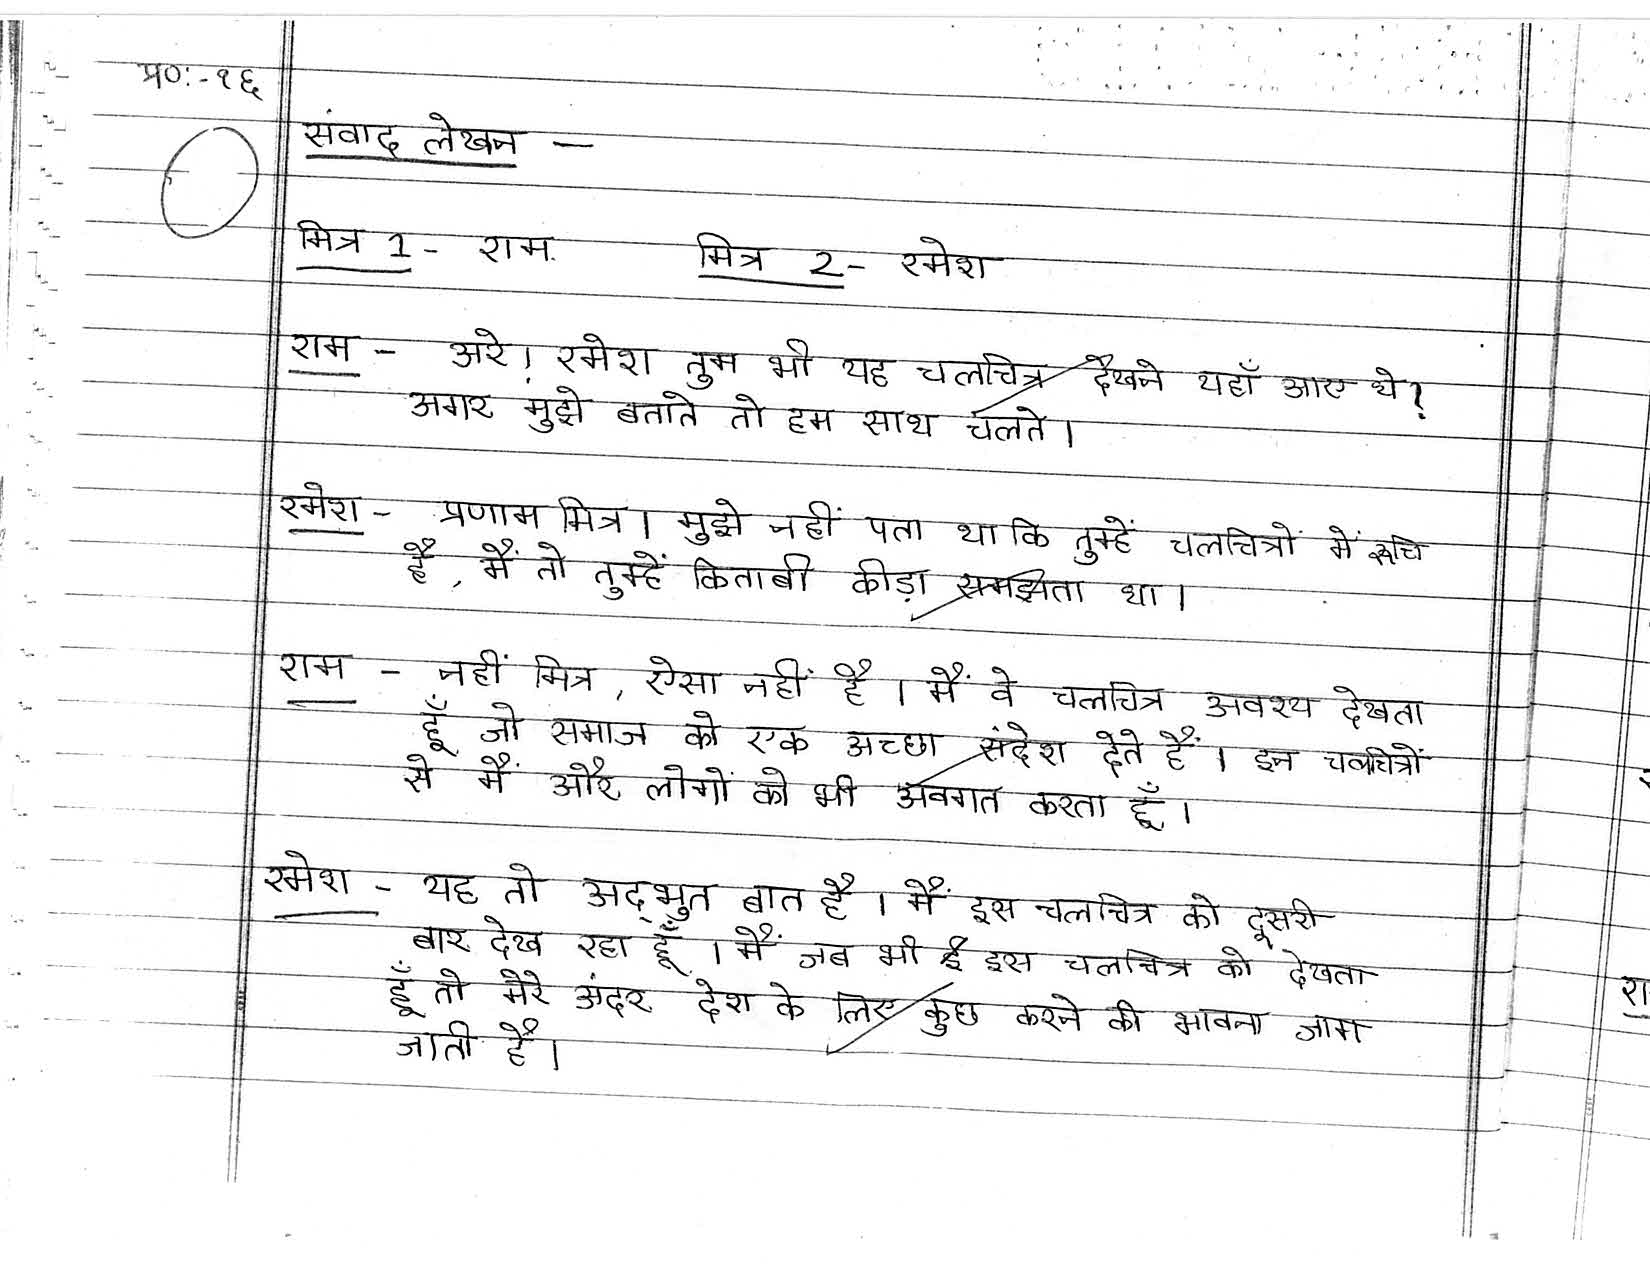 प्र०:-१६
संवाद लेखन —
मित्र 1 - राम. मित्र 2 - रमेश
राम - अरे! रमेश तुम भी यह चलचित्र देखने यहाँ आए थे?
अगर मुझे बताते तो हम साथ चलते।
रमेश - प्रणाम मित्र। मुझे नहीं पता था कि तुम्हें चलचित्रों में रूचि
है, मैं तो तुम्हें किताबी कीड़ा समझता था।
राम - नहीं मित्र, ऐसा नहीं है। मैं वे चलचित्र अवश्य देखता
हूँ जो समाज को एक अच्छा संदेश देते हैं। इन चलचित्रों
से मैं और लोगों को भी अवगत करता हूँ।
रमेश - यह तो अद्भुत बात है। मैं इस चलचित्र को दूसरी
बार देख रहा हूँ। मैं जब भी इस चलचित्र को देखता
हूँ तो मेरे अंदर देश के लिए कुछ करने की भावना जाग
जाती है।
रा